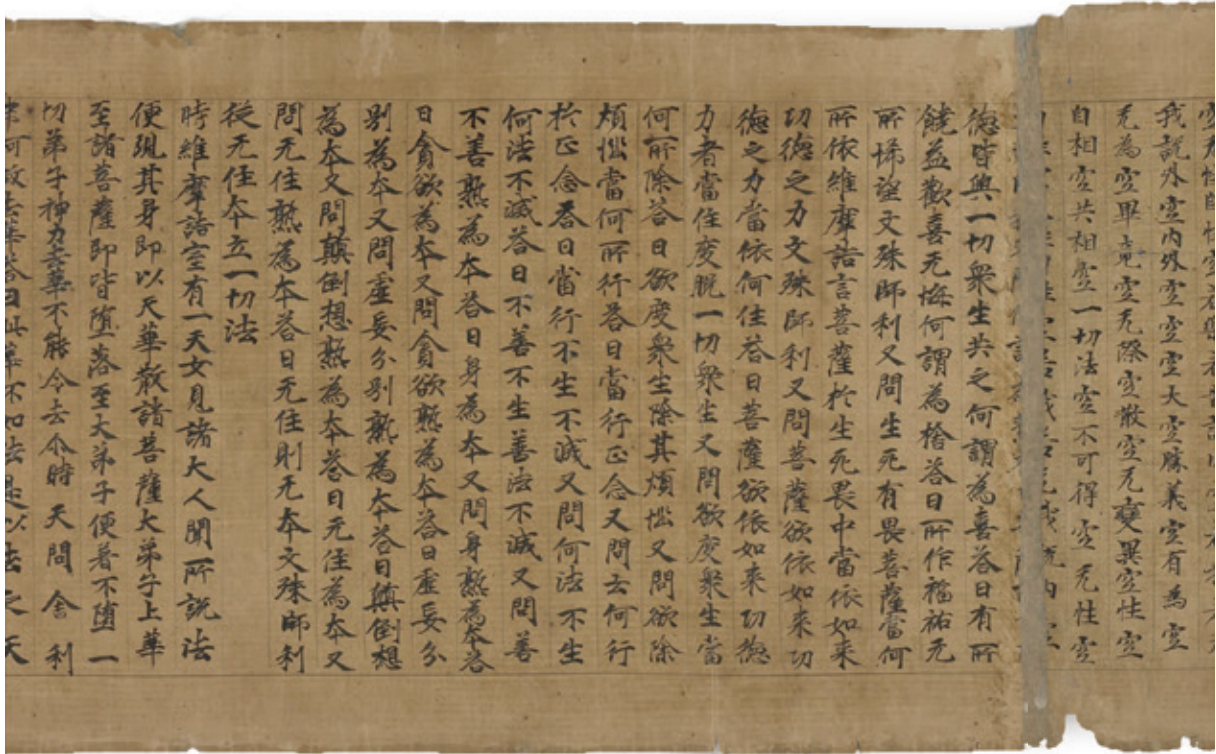 我說外空內外空空空大空勝義空有為空
无為空畢竟空无際空散空无變異空性空
自相空共相空一切法空不可得空无性空
德皆與一切衆生共之何謂為喜答曰有所
饒益歡喜无悔何謂為捨答曰所作福祐无
所悕望文殊師利又問生死有畏菩薩當何
所依維摩詰言菩薩於生死畏中當依如来
功德之力文殊師利又問菩薩欲依如来功
德之力當依何住答曰菩薩欲依如来功德
力者當住度脫一切衆生又問欲度衆生當
何所除答曰欲度衆生除其煩惱又問欲除
煩惱當何所行答曰當行正念又問云何行
於正念答曰當行不生不滅又問何法不生
何法不滅答曰不善不生善法不滅又問善
不善熟為本答曰身為本又問身熟為本答
曰貪欲為本又問貪欲熟為本答曰虛妄分
别為本又問虛妄分别熟為本答曰顛倒想
為本又問顛倒想熟為本答曰无住為本又
問无住熟為本答曰无住則无本文殊師利
從无住本立一切法
時維摩詰室有一天女見諸大人聞所說法
便現其身即以天華散諸菩薩大弟子上華
至諸菩薩即皆墮落至大弟子便著不墮一
切弟子神力去華不能令去尒時天問舍利
何故去華答曰此華不如法是以去之天